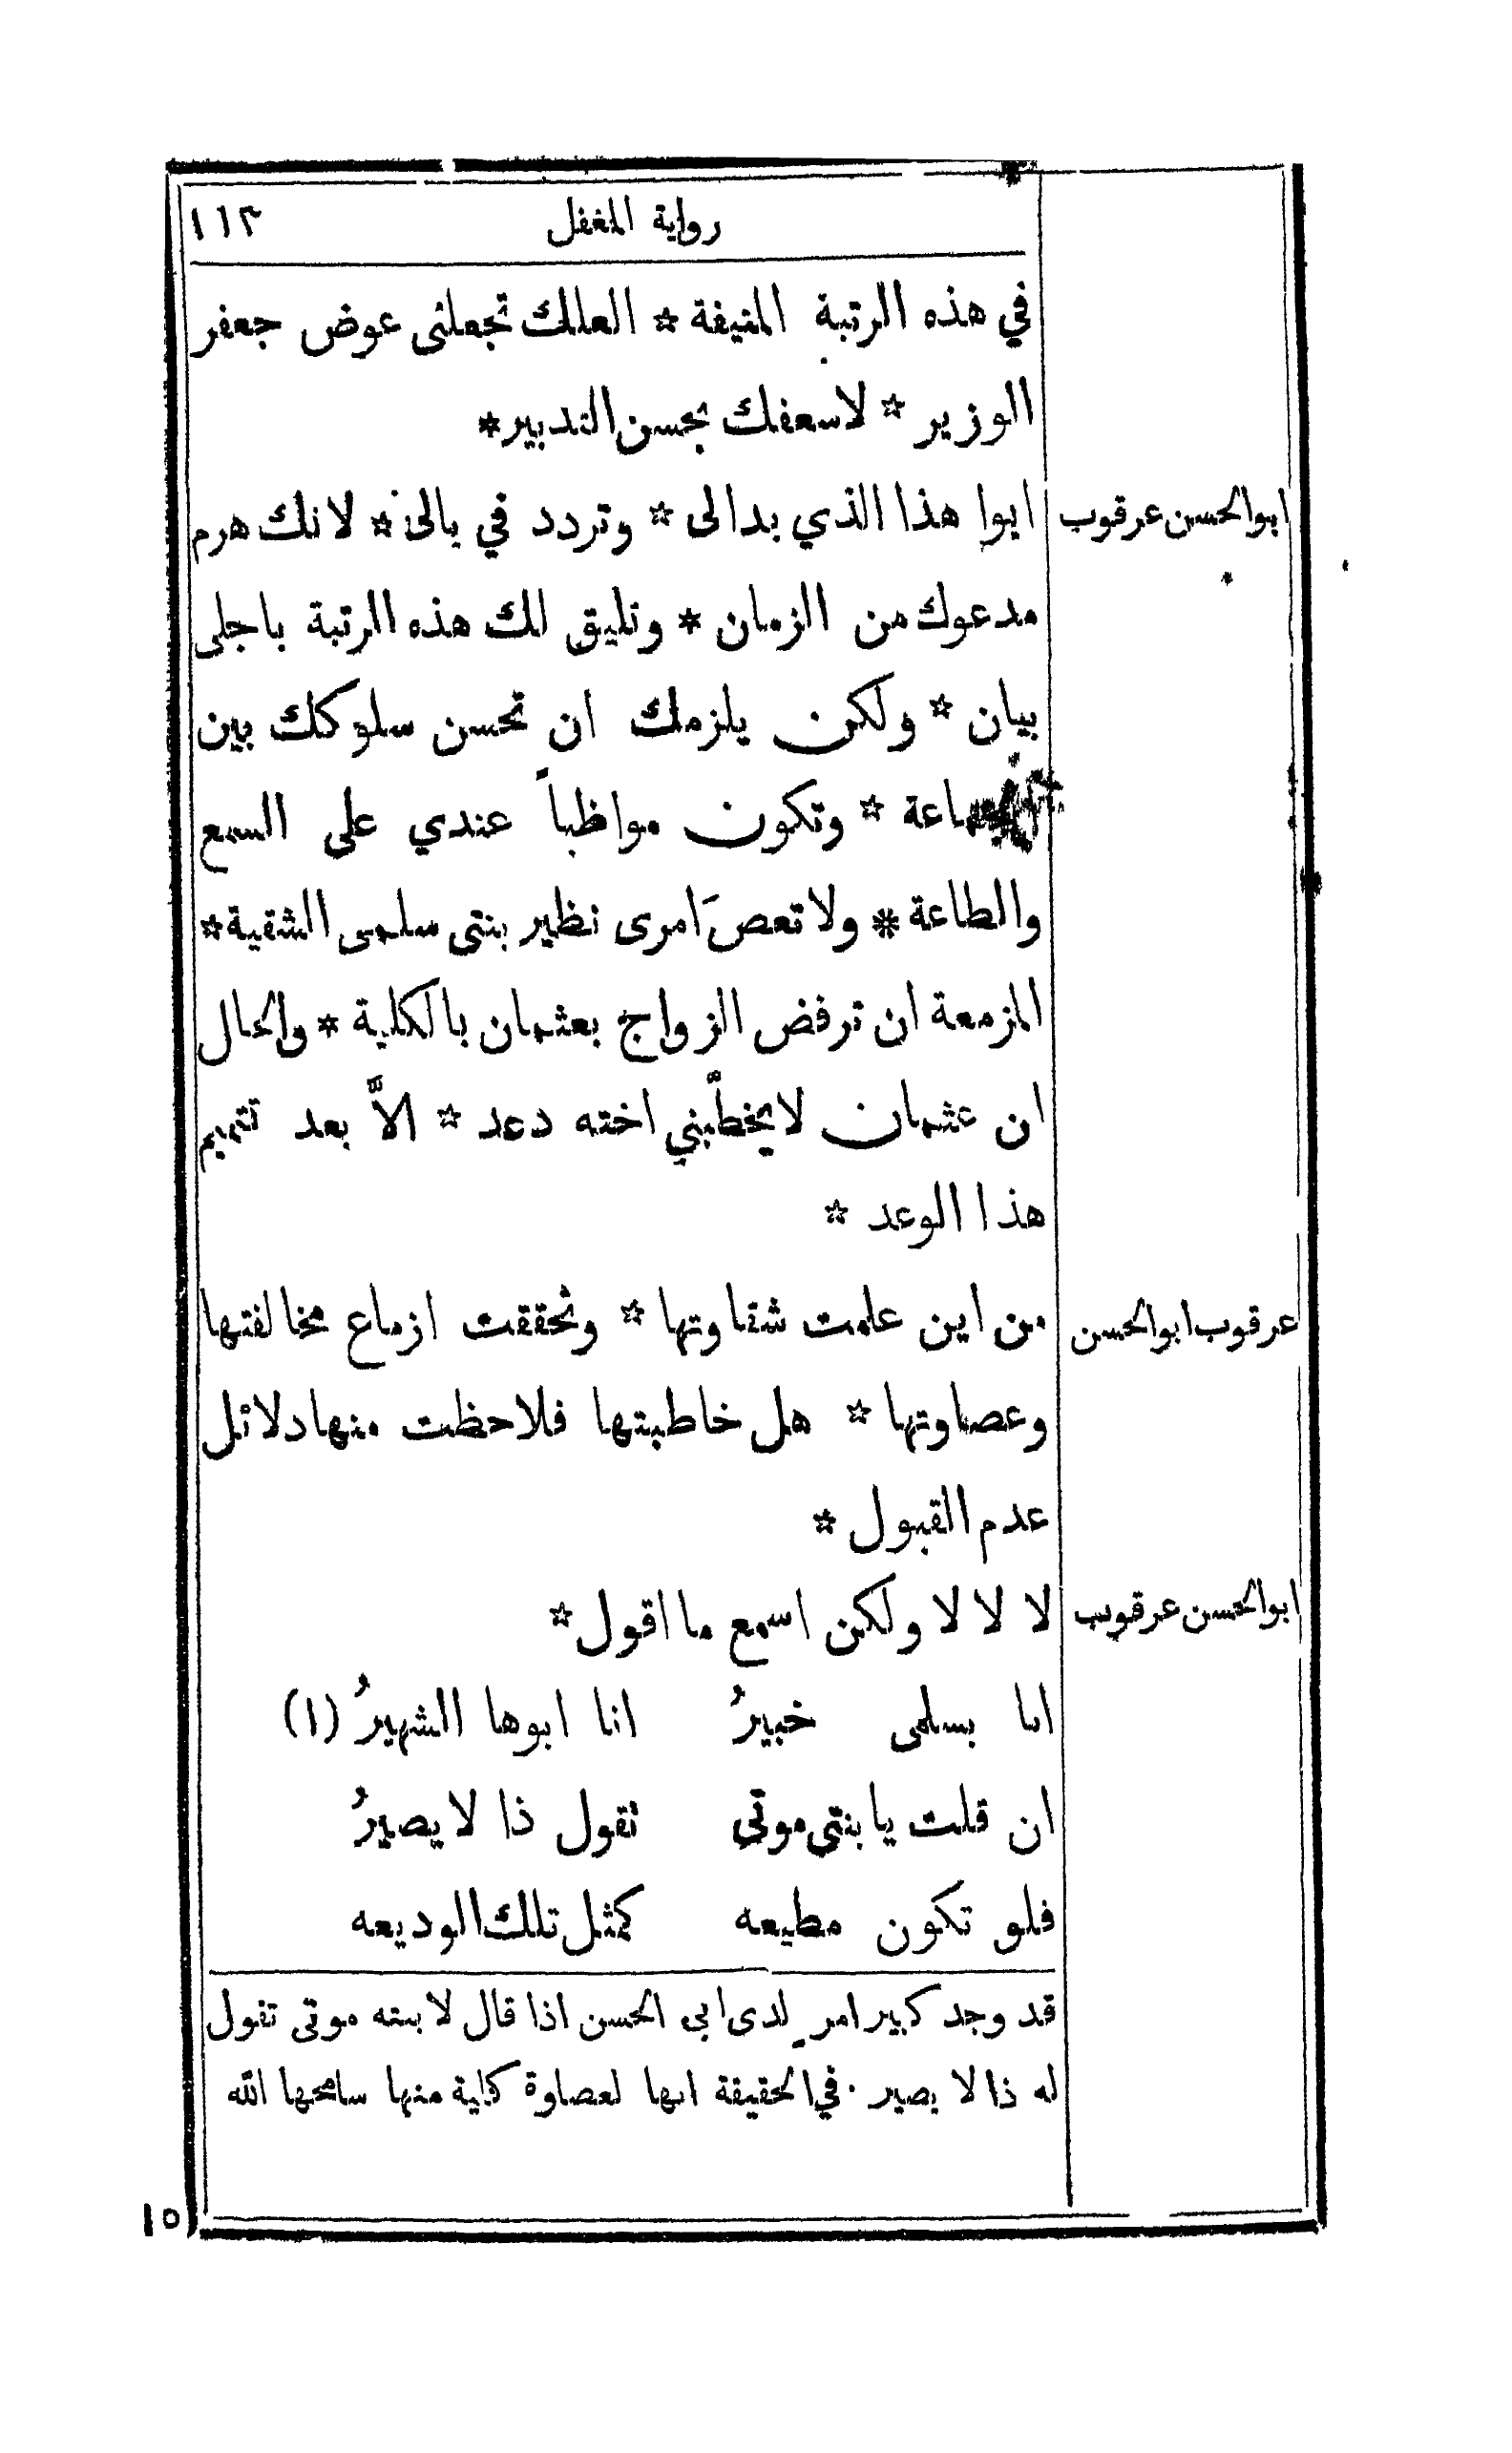 رواية المغفل ١١٣
في هذه الرتبة المنيفة * العلك تجعلنى عوض جعفر
الوزير * لاسعفك بحسن التدبير *
ابوالحسن عرقوب ايوا هذا الذي بدالى * وتردد في بالى * لانك هرم
مدعوك من الزمان * وتليق لك هذه الرتبة باجلى
بيان * ولكن يلزمك ان تحسن سلوكك بين
الجماعة * وتكون مواظباً عندي على السمع
والطاعة * ولا تعصَ امرى نظير بنتى سلمى الشقية *
المزمعة ان ترفض الزواج بعثمان بالكلية * والحال
ان عثمان لا يخطّبني اخته دعد * الاَّ بعد تتميم
هذا الوعد *
عرقوب ابوالحسن من اين علمت شقاوتها * وتحققت ازماع مخالفتها
وعصاوتها * هل خاطبتها فلاحظت منها دلائل
عدم القبول *
ابوالحسن عرقوب لا لا لا ولكن اسمع ما اقول *
انا بسلمى خبيرُ انا ابوها الشهيرُ (١)
ان قلت يا بنتى موتى تقول ذا لا يصيرُ
فلو تكون مطيعه كمثل تلك الوديعه
قد وجد كبير امر لدى ابى الحسن اذا قال لابنته موتى تقول
له ذا لا يصير . في الحقيقة انها لعصاوة كلية منها سامحها الله
١٥